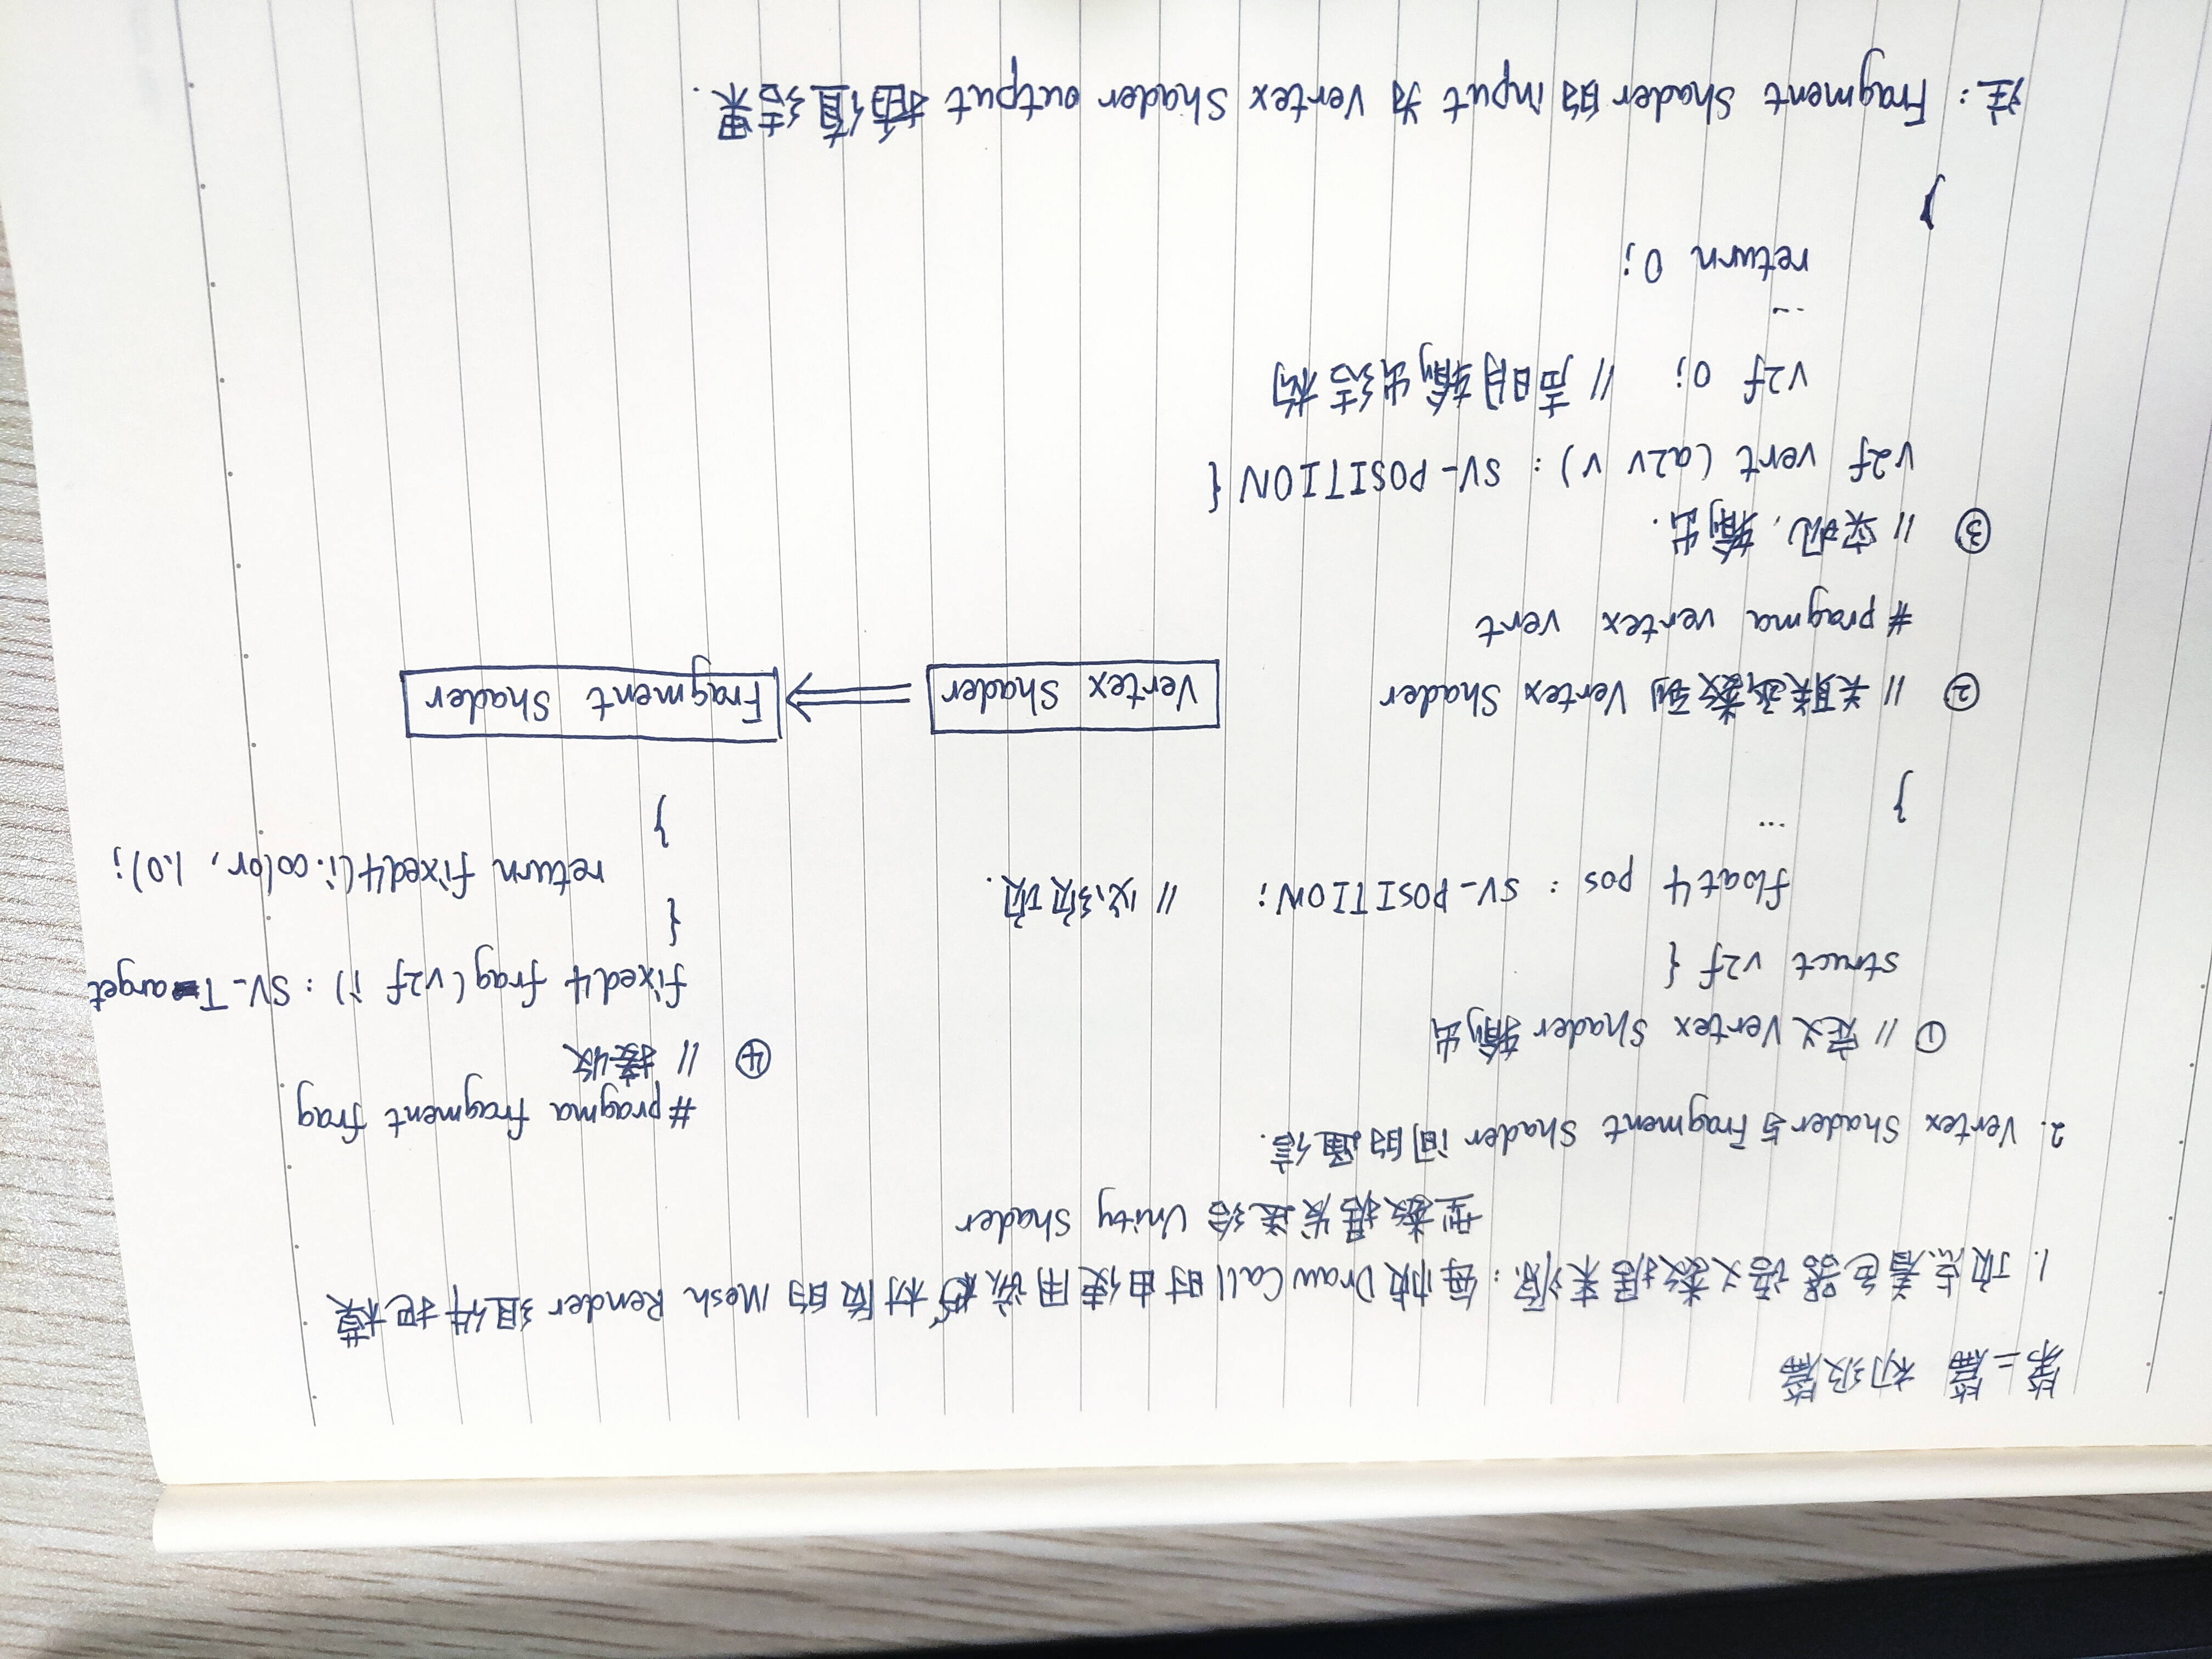 第二篇 初级篇
1. 顶点着色器语义数据来源：每帧DrawCall时由使用该材质的 Mesh Render 组件把模
型数据发送给 Unity Shader
2. Vertex Shader与Fragment Shader间的通信.
① // 定义Vertex Shader输出
struct v2f {
float4 pos : SV_POSITION; // 必须项.
...
}
② // 关联函数到 Vertex Shader
#pragma vertex vert
③ // 实现, 输出.
v2f vert (a2v v) : SV_POSITION {
v2f o; // 声明输出结构
...
return o;
}
#pragma fragment frag
④ // 接收
fixed4 frag(v2f i) : SV_Target
{
return fixed4(i.color, 1.0);
}
Vertex Shader ⇒ Fragment Shader
注: Fragment Shader的input为 Vertex Shader output 插值结果.